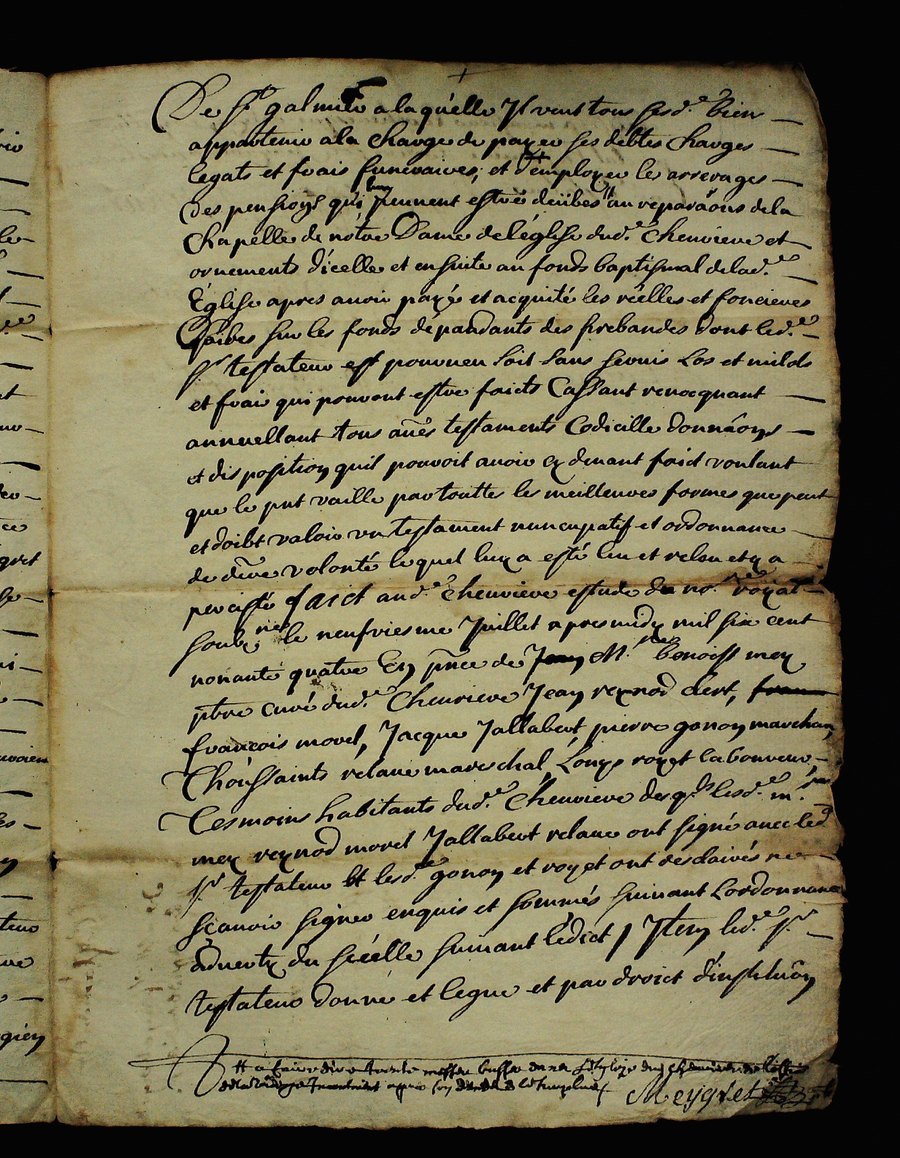 De st galmier a laquelle Il veut tous sesd. bien
appartenir a la charge de payer ses debtes charges
legats et frais funeraires, et d'employer les arrerages
des pensions qui luy peuvent estre deübes au reparaôns de la
Chapelle de nôtre Dame de léglise dud. Chevriere et
ornements d'icelle et ensuite au fonds baptismal de lad.
Église apres avoir payés et acquité les réelles et foncieres
sur les fonds dépandants des prebandes dont led.
sr testateur est pourveu soit sans servis Los et milods
et frais qui pouvont estre faicts Cassant revocquant
annullant tous aûes testaments Codicille donnaôns
et disposition quil pouvoit avoir cy devant faict voulant
que le pnt vaille par touttes les meilleures formes que peut
et doibt valoir un testament nuncupatif et ordonnance
de dêre volonté lequel luy a esté leu et releu et y a
persisté faict aud. Chevriere estude du no.re royal
soubzné le neufviesme Juillet apres midy mil six cent
nonante quatre En pñce de Mr. benoist mey
pbtre curé dud. Chevriere Jean reynod clerc,
françois morel, Jacque Jallabert, pierre gonon marchan,
Thoussaints relave mareschal, Louys royet laboureur,
Tesmoins habitants dud. Chevriere desq.ls lesd. mre
mey reynod morel Jallabert relave ont signé avec led
sr testateur et lesd. gonon et royet ont desclairés ne
sçavoir signer enquis et sommés suivant Lordonnance
adverty du scéelle suivant lédict / Item led. sr
testateur donne et legue et par droict d'institûôn
# a faire dire trente messe basse dans du Chevriere
apres son
Meygret